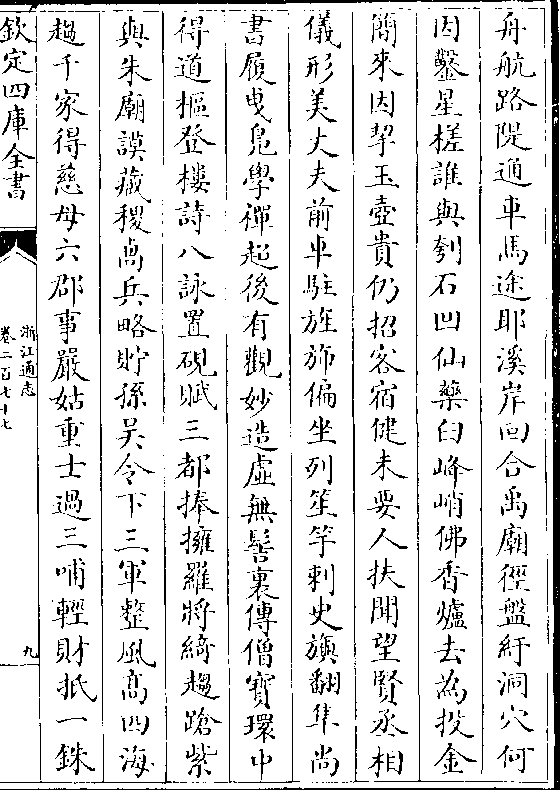 舟航路隄通車馬途耶溪岸回合禹廟徑盤紆洞穴何
因鑿星槎誰與刳石凹仙藥臼峰峭佛香爐去為投金
簡來因挈玉壺貴仍招客宿健未要人扶聞望賢丞相
儀形美丈夫前車駐旌斾偏坐列笙竽刺史旟翻隼尚
書履曳鳬學禪超後有觀妙造虛無髻裏傳僧寶環中
得道樞登樓詩八詠置硯賦三都捧擁羅將綺趨蹌紫
與朱廟謨藏稷卨兵略貯孫吳令下三軍整風高四海
趨千家得慈母六郡事嚴姑重士過三哺輕財抵一銖
欽定四庫全書
浙江通志
卷二百七十七
九